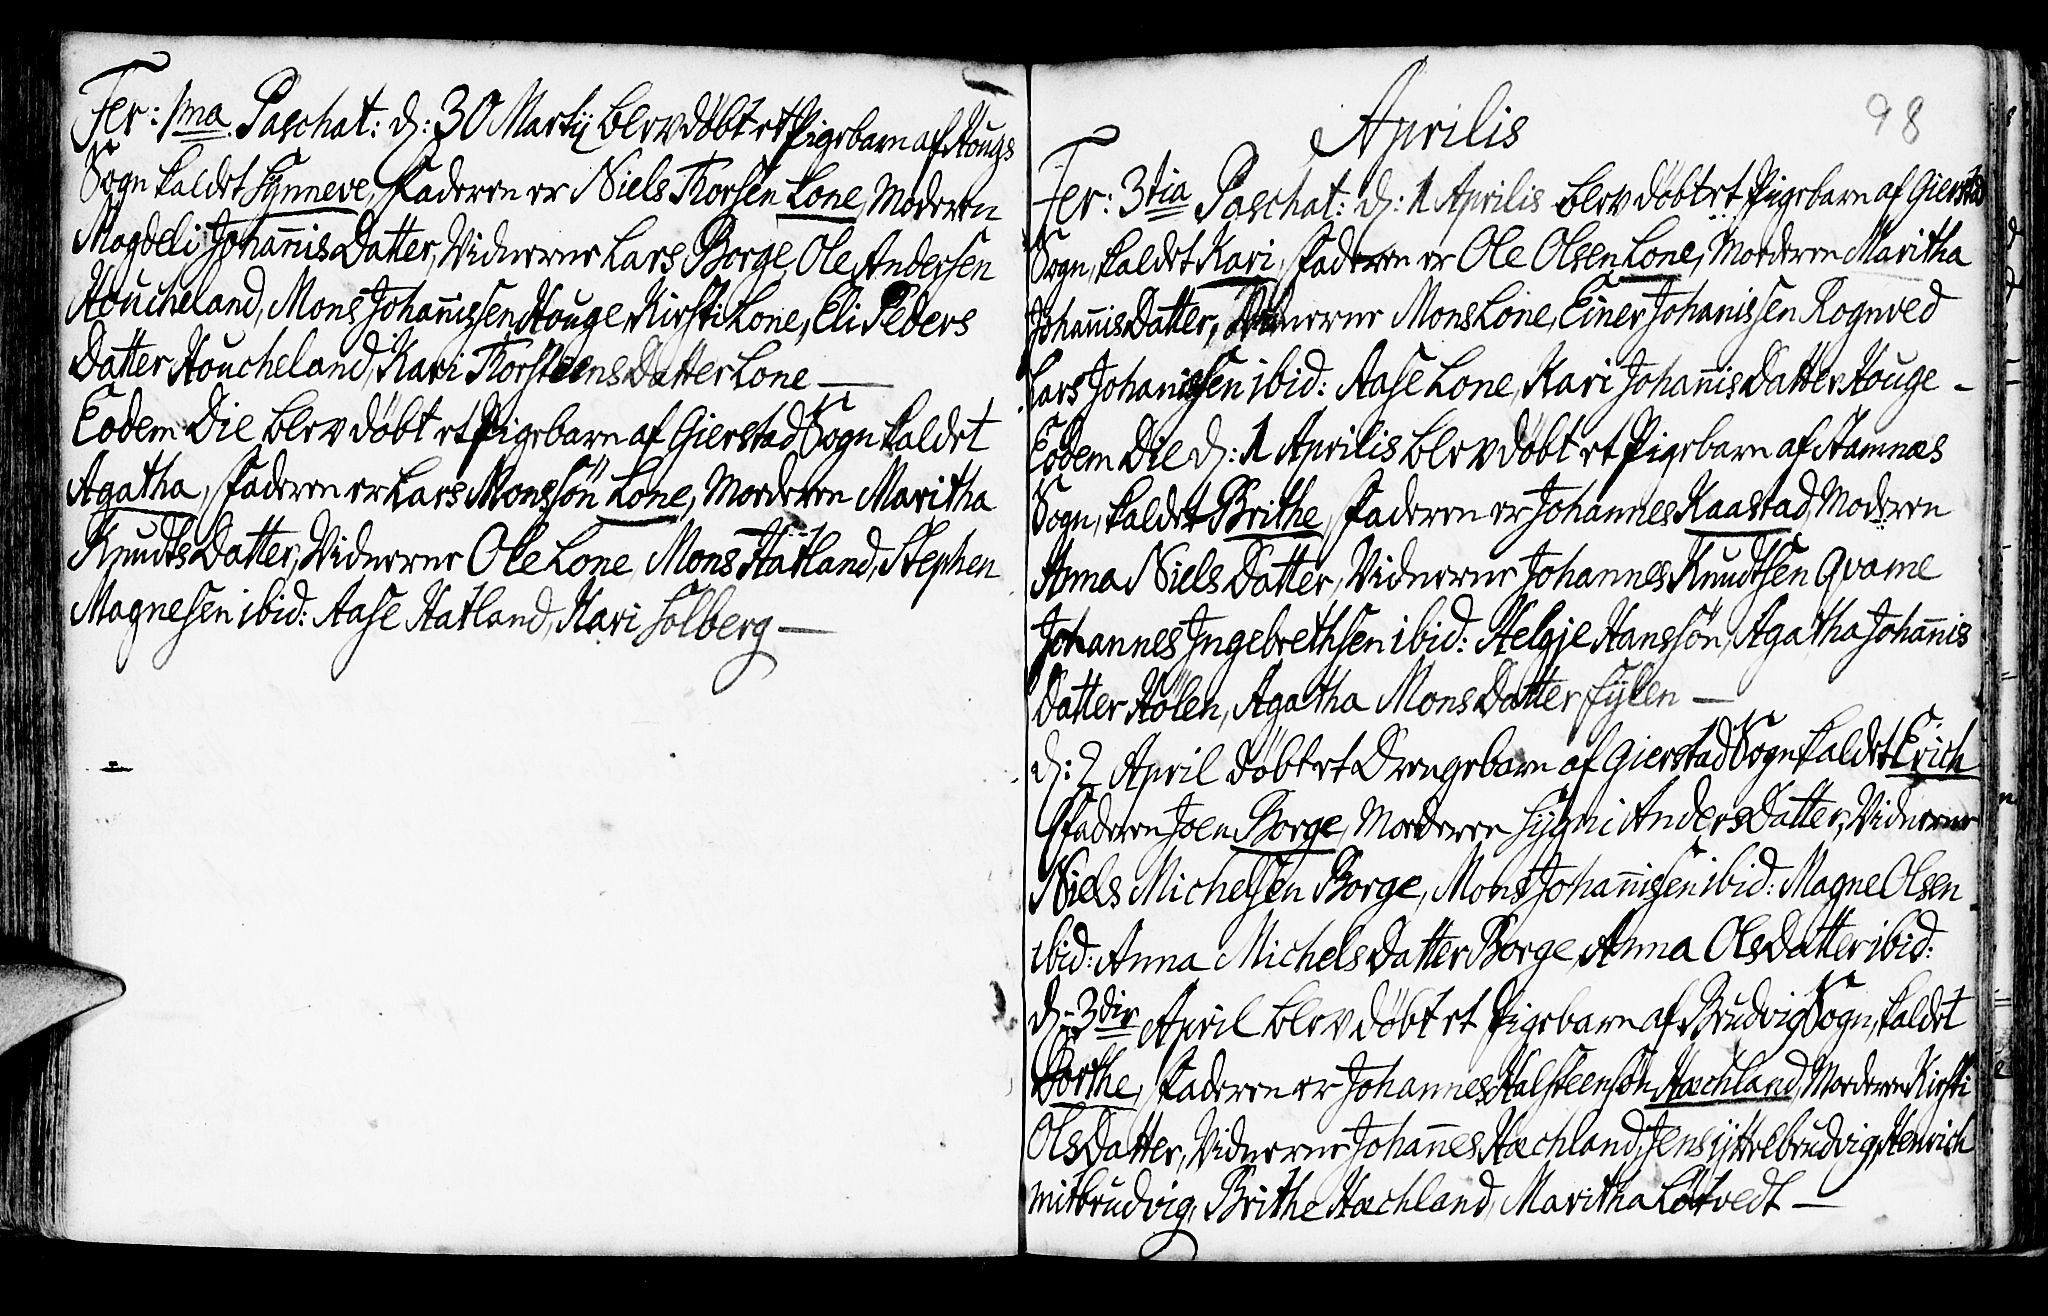 Fer: 1ma Paschat: d: 30 Martij blev döbt et Pigebarn af Hougs
Sogn kaldet Synneve, Faderen er Niels Torsen Lone, Moderen
Magdeli Johañis Datter, Vidnerne Lars Borge, Ole Andersen
Houcheland, Mons Johañissen Houge, Kirsti Lone, Eli Peders
Datter Houcheland, Kari Torsteens Datter Lone —
Eodem Die blev döbt et Pigebarn af Gierstad Sogn kaldet
Agatha, Faderen er Lars Monssön Lone, Moderen Maritha
Knudts Datter, Vidnerne Ole Lone, Mons Hatland, Stephen
Magnesen ibid: Aase Hatland, Kari Solberg —
Aprilis
98
Fer: 3tia Paschat: d: 1 Aprilis blev döbt et Pigebarn af Gierstad
Sogn, kaldet Kari, Faderen er Ole Olsen Lone, Moderen Maritha
Johañis Datter, Vidnerne Mons Lone, Einer Johanissen Rognved
Lars Johanissen ibid: Aase Lone, Kari Johañis Datter Houge —
Eodem Die d: 1 Aprilis blev döbt et Pigebarn af Hamnæs
Sogn, kaldet Brithe, Faderen er Johannes Kaastad, Moderen
Anna Niels Datter, Vidnerne Johannes Knudtsen Qvame
Johannes Ingebrethsen ibid: Helgje Hanssön, Agatha Johañis
Datter Hölen, Agatha Mons Datter Fylen —
d: 2 April döbt et Drengebarn af Gierstad Sogn kaldet Erich
Faderen Joen Borge, Moderen Sygni Anders Datter, Vidnerne
Niels Michelsen Borge, Mons Johañissen ibid: Magne Olsen
ibid: Anna Michels Datter Borge, Anna Ols Datter ibid:
d: 3die April blev döbt et Pigebarn af Brudvig Sogn, kaldet
Borthe, Faderen er Johannes Halsteensön Hæchland, Moderen Kirsti
Ols Datter, Vidnerne Johañes Hæchland, Jens ÿttrebrudvig, Henrich
mitbrudvig, Brithe Hæchland, Maritha Lötvedt —